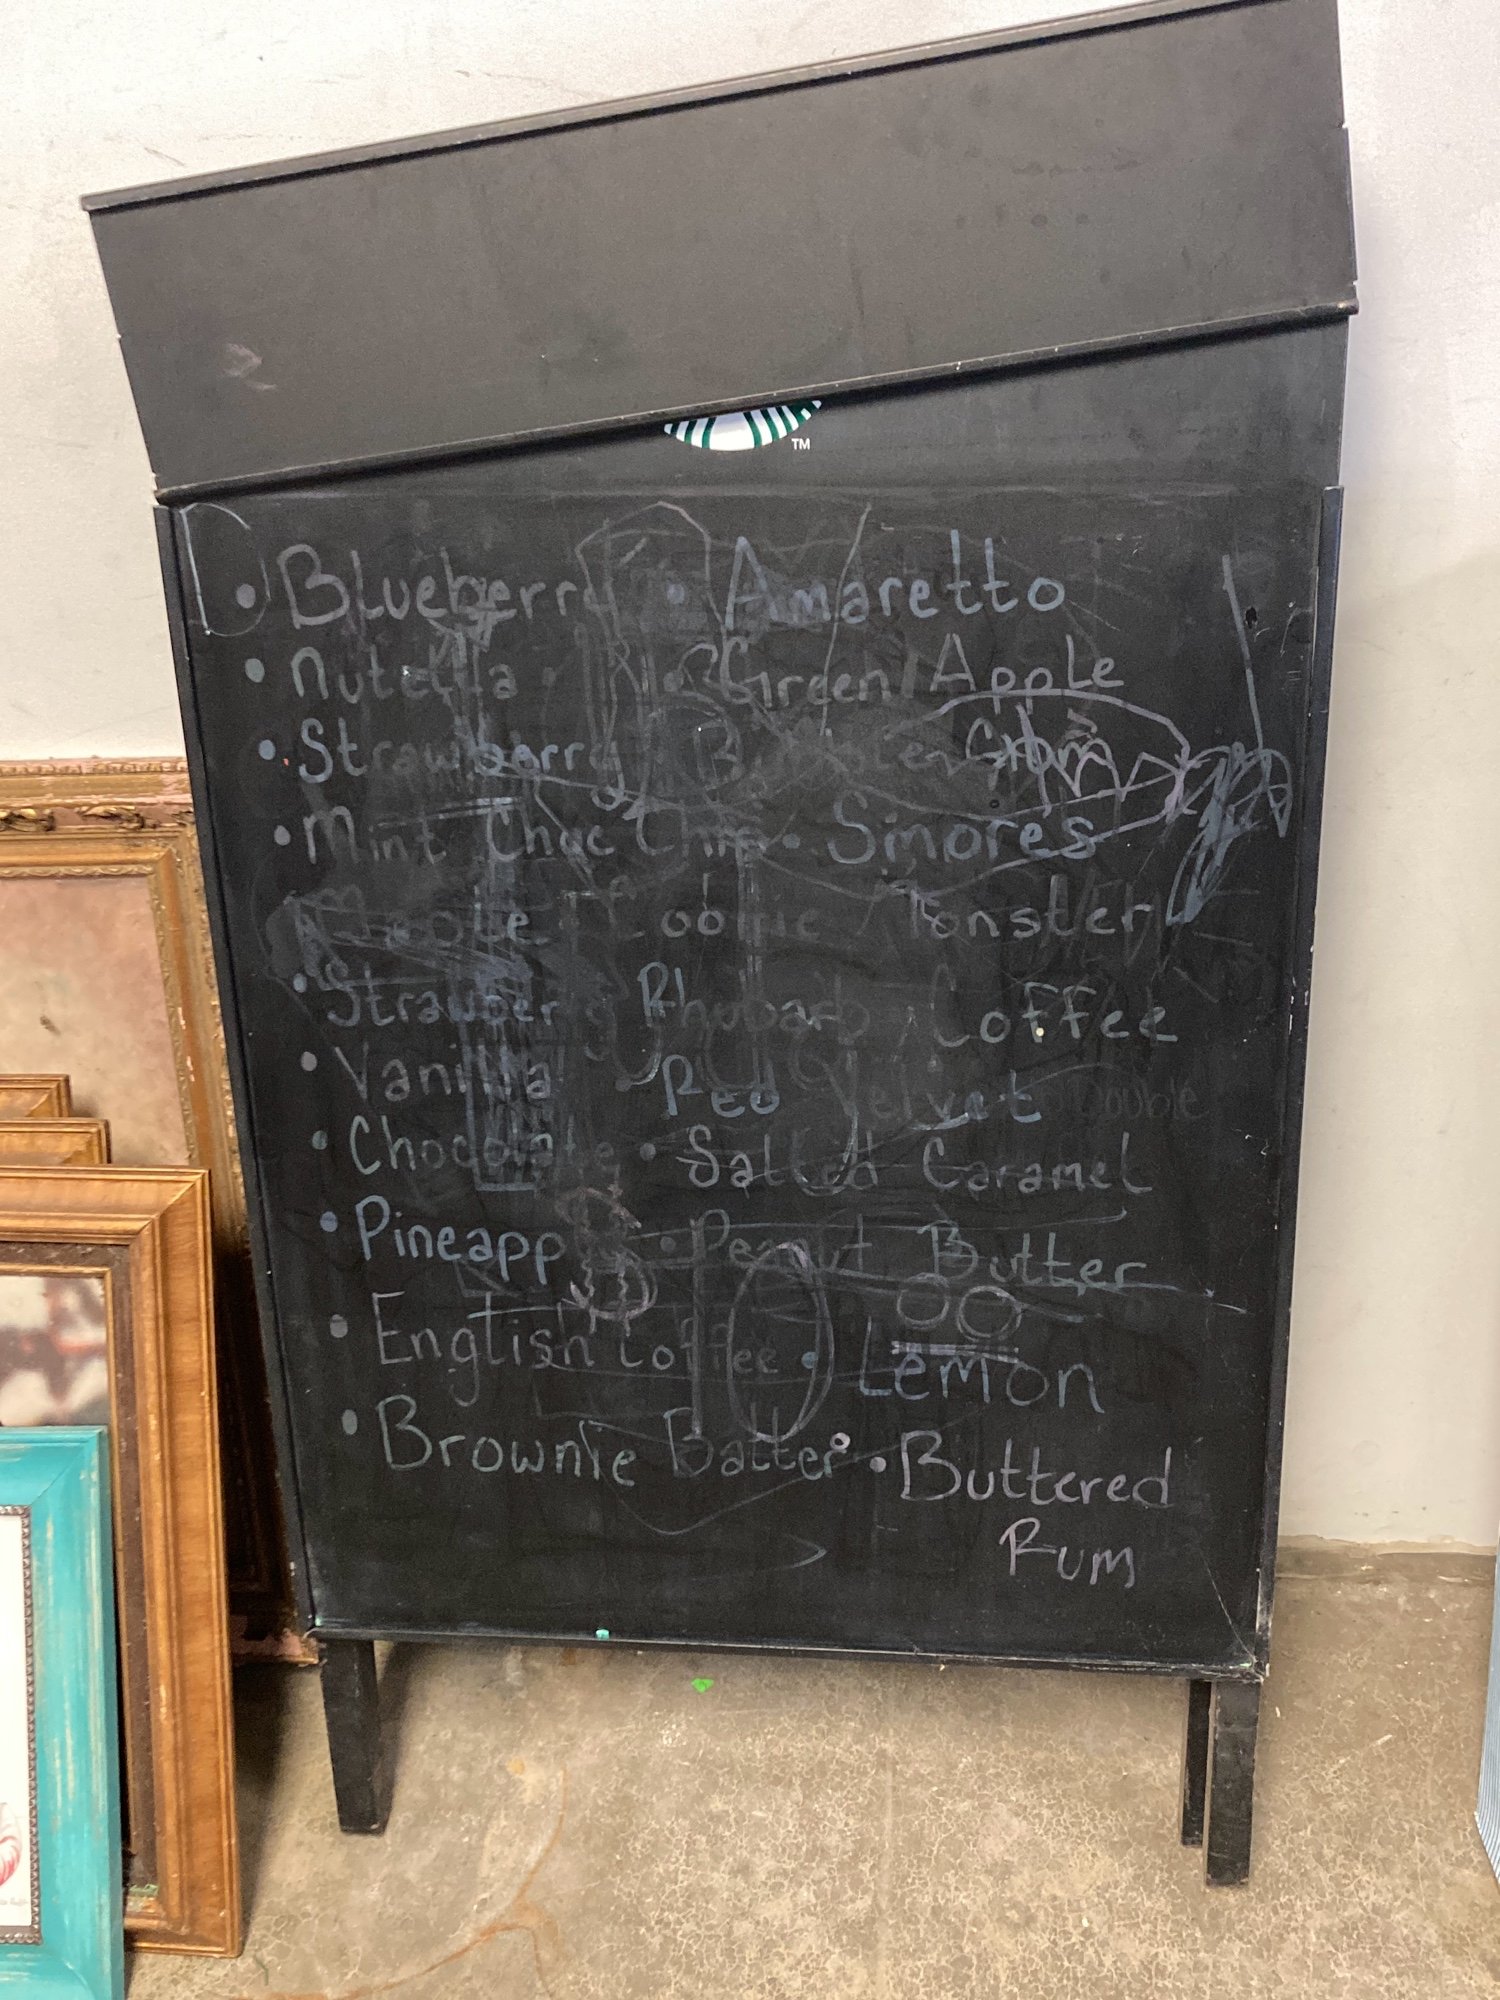 TM
• Blueberry • Amaretto
• Nutella • Green Apple
• Strawberry Gum
• Mint Choc Chip • Smores
Maple Cookie Monster
• Strawberry Rhubarb Coffee
• Vanilla Red Velvet Double
• Chocolate • Salted Caramel
• Pineapp • Peanut Butter
• English Toffee • Lemon
• Brownie Batter • Buttered
Rum